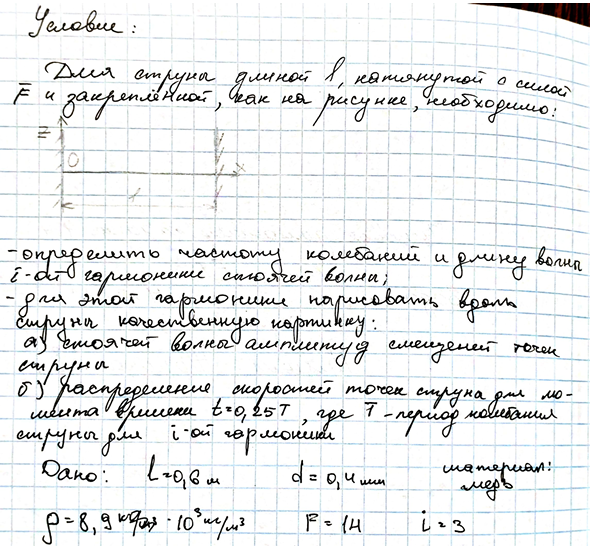 Условие:
Для струны длиной l, натянутой с силой
F и закреплённой, как на рисунке, необходимо:
z
0
x
l
-определить частоту колебаний и длину волны
i-ой гармоники стоячей волны;
-для этой гармоники нарисовать вдоль
струны качественную картинку:
а) стоячей волны амплитуд смещеней точек
струны
б) распределение скоростей точек струна для мо-
мента времени t=0,25T, где T-период колебания
струны для i-ой гармоники
Дано: l=0,6м d=0,4мм материал:
медь
ρ=8,9 · 10³ кг/м³ F=1Н i=3